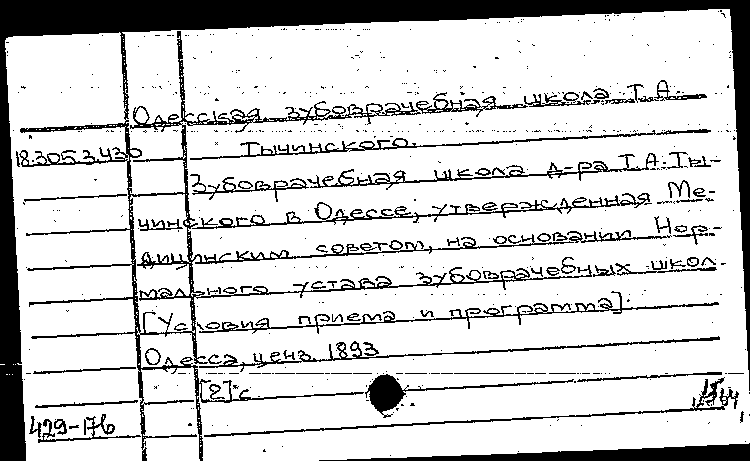 Одесская зубоврачебная школа Т.А.
18.305.3.430 Тычинского.
Зубоврачебная школа д-ра Т.А.Ты-
чинского в Одессе, утвержденная Ме-
дицинским советом, на основании Нор-
мального устава зубоврачебных школ.
[Условия приема и программа].
Одесса, ценз. 1893
[2] с
429-176